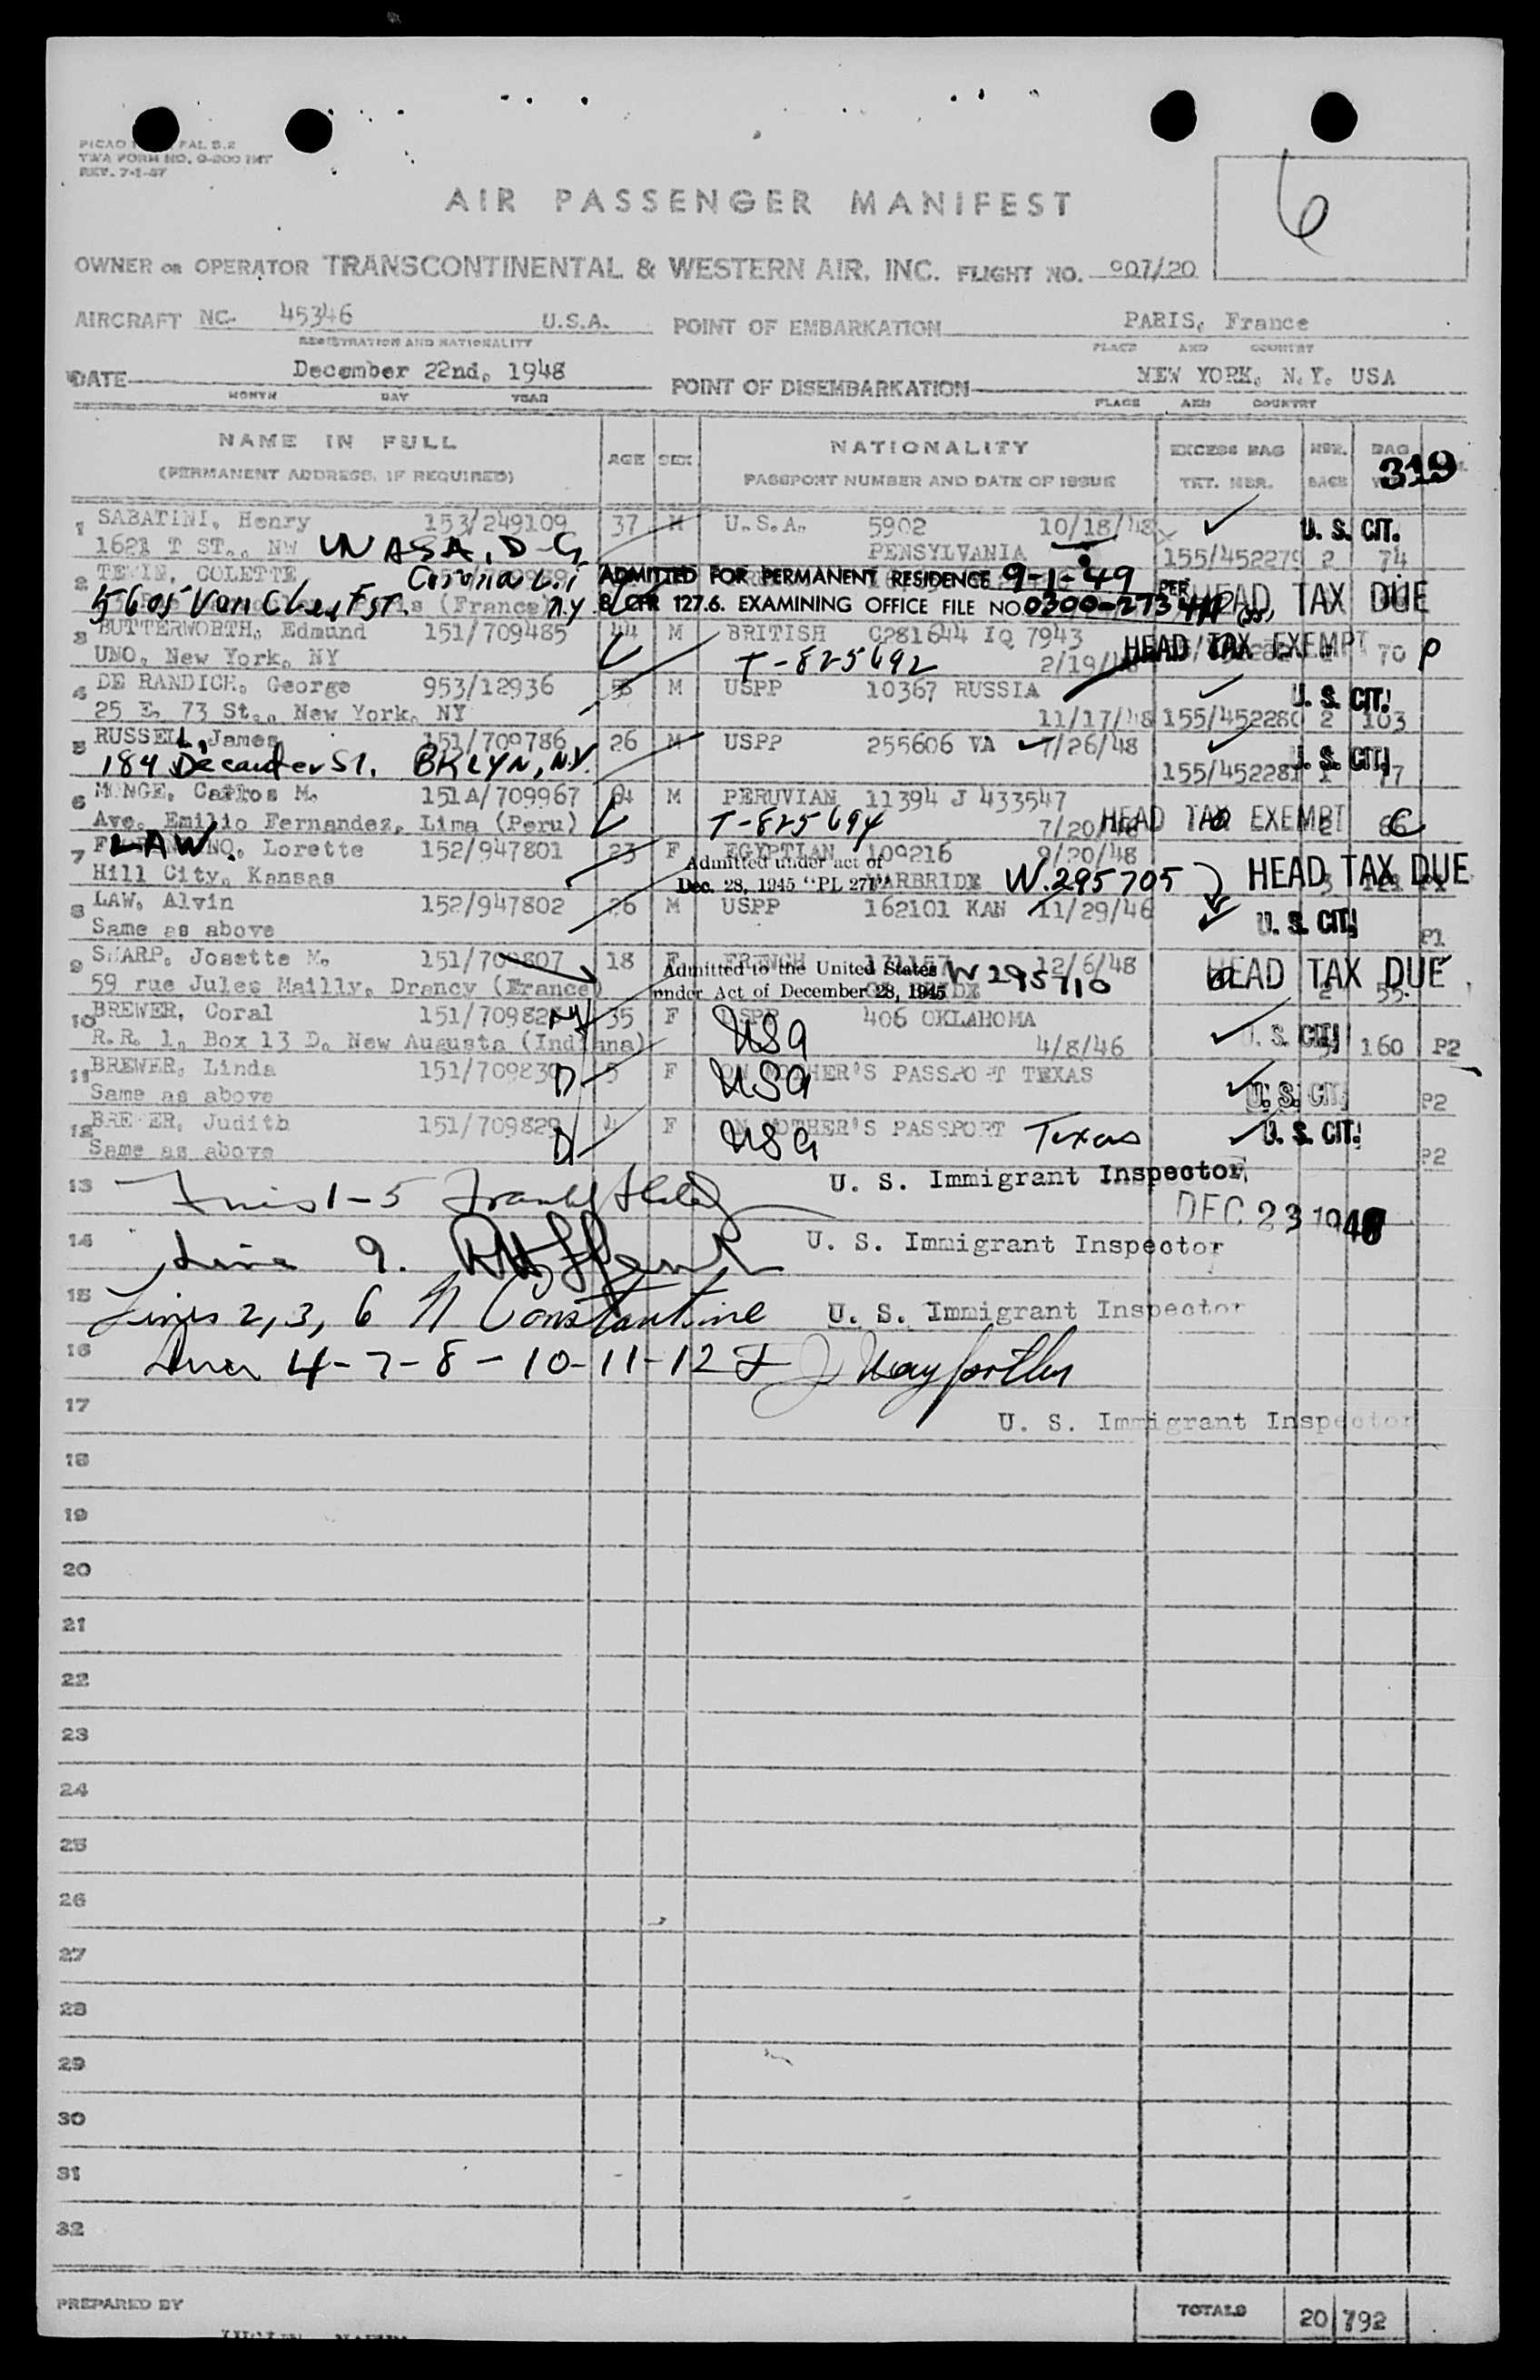 TWA FORM NO. O-200 INT
REV. 7-1-47
6
AIR PASSENGER MANIFEST
OWNER OR OPERATOR TRANSCONTINENTAL & WESTERN AIR, INC. FLIGHT NO. 907/20
AIRCRAFT NC- 45346 U.S.A. POINT OF EMBARKATION PARIS, France
REGISTRATION AND NATIONALITY PLACE AND COUNTRY
DATE December 22nd, 1948 POINT OF DISEMBARKATION NEW YORK, N.Y. USA
MONTH DAY YEAR PLACE AND COUNTRY
NAME IN FULL AGE SEX NATIONALITY EXCESS BAG NBR. BAG
(PERMANENT ADDRESS, IF REQUIRED) PASSPORT NUMBER AND DATE OF ISSUE TKT. NBR. BAGS 319
1 SABATINI, Henry 153/249109 37 M U.S.A. 5902 10/18/48 U. S. CIT.
1621 T ST., NW WASH, D-C, PENSYLVANIA 155/452279 2 74
2 COLETTE Corona L.I ADMITTED FOR PERMANENT RESIDENCE 9-1-49 PER HEAD TAX DUE
5605 Van (France) N.Y 8 CFR 127.6. EXAMINING OFFICE FILE NO. 0300-273
3 BUTTERWORTH, Edmund 151/709485 44 M BRITISH C281644 IQ 7943 HEAD TAX EXEMPT
UNO, New York, NY T-825692 2/19/48 70 P
4 DE RANDICH, George 953/12936 M USPP 10367 RUSSIA U. S. CIT.
25 E. 73 St., New York, NY 11/17/48 155/452280 2 103
5 RUSSELL, James 151/709786 26 M USPP 255606 VA 7/26/48 U. S. CIT.
184 Decauter St. BKLYN, N.Y. 155/452281 1 77
6 MONGE, Carlos M. 151A/709967 64 M PERUVIAN 11394 J 433547
Ave. Emilio Fernandez, Lima (Peru) T-825694 7/20/48 HEAD TAX EXEMPT 2 C
7 LAW. Lorette 152/947801 23 F EGYPTIAN 109216 9/20/48
Hill City, Kansas Admitted under act of Dec. 28, 1945 "PL 271" WARBRIDE W.295705 HEAD TAX DUE
8 LAW, Alvin 152/947802 26 M USPP 162101 KAN 11/29/46 U. S. CIT.
Same as above P1
9 SHARP, Josette M. 151/709807 18 F FRENCH 12/6/48
59 rue Jules Mailly, Drancy (France) Admitted to the United States under Act of December 28, 1945 W295710 HEAD TAX DUE 2 55
10 BREWER, Coral 151/70982 M 35 F USPP 406 OKLAHOMA U. S. CIT.
R.R. 1, Box 13 D, New Augusta (Indiana) USA 4/8/46 160 P2
11 BREWER, Linda 151/709830 D 5 F ON MOTHER'S PASSPORT TEXAS USA
Same as above U. S. CIT. P2
12 BREWER, Judith 151/709829 4 F ON MOTHER'S PASSPORT Texas U. S. CIT.
Same as above D USA P2
13 Lines 1-5 U. S. Immigrant Inspector
DEC 23 1948
14 Line 9. U. S. Immigrant Inspector
15 Lines 2, 3, 6 N Constantine U. S. Immigrant Inspector
16 Lines 4-7-8-10-11-12
17 U. S. Immigrant Inspector
18
19
20
21
22
23
24
25
26
27
28
29
30
31
32
PREPARED BY TOTALS 20 792